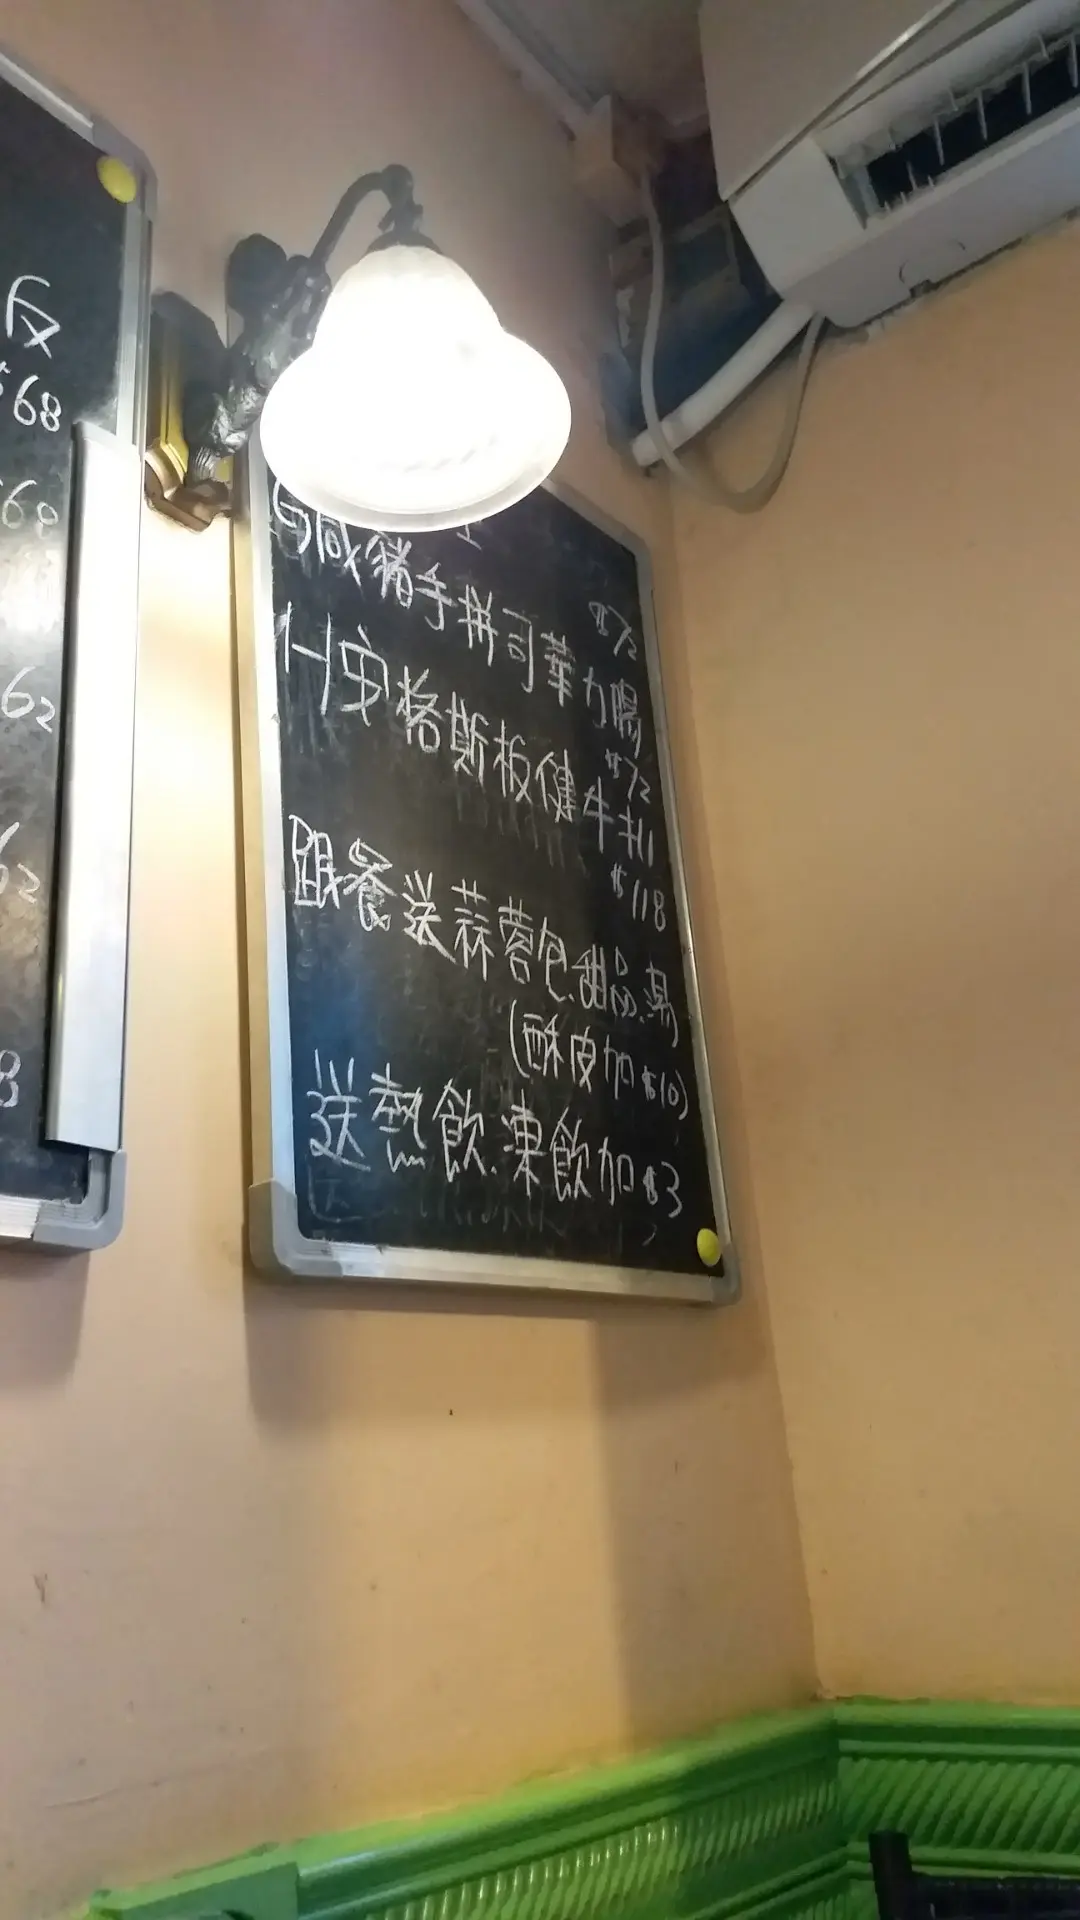 反
$68
60
62
62
8
$72
G咸豬手拼司華力腸
$72
H安格斯板健牛扒
$118
跟餐送蒜蓉包.甜品.湯
(酥皮加$10)
送熱飲.凍飲加$3